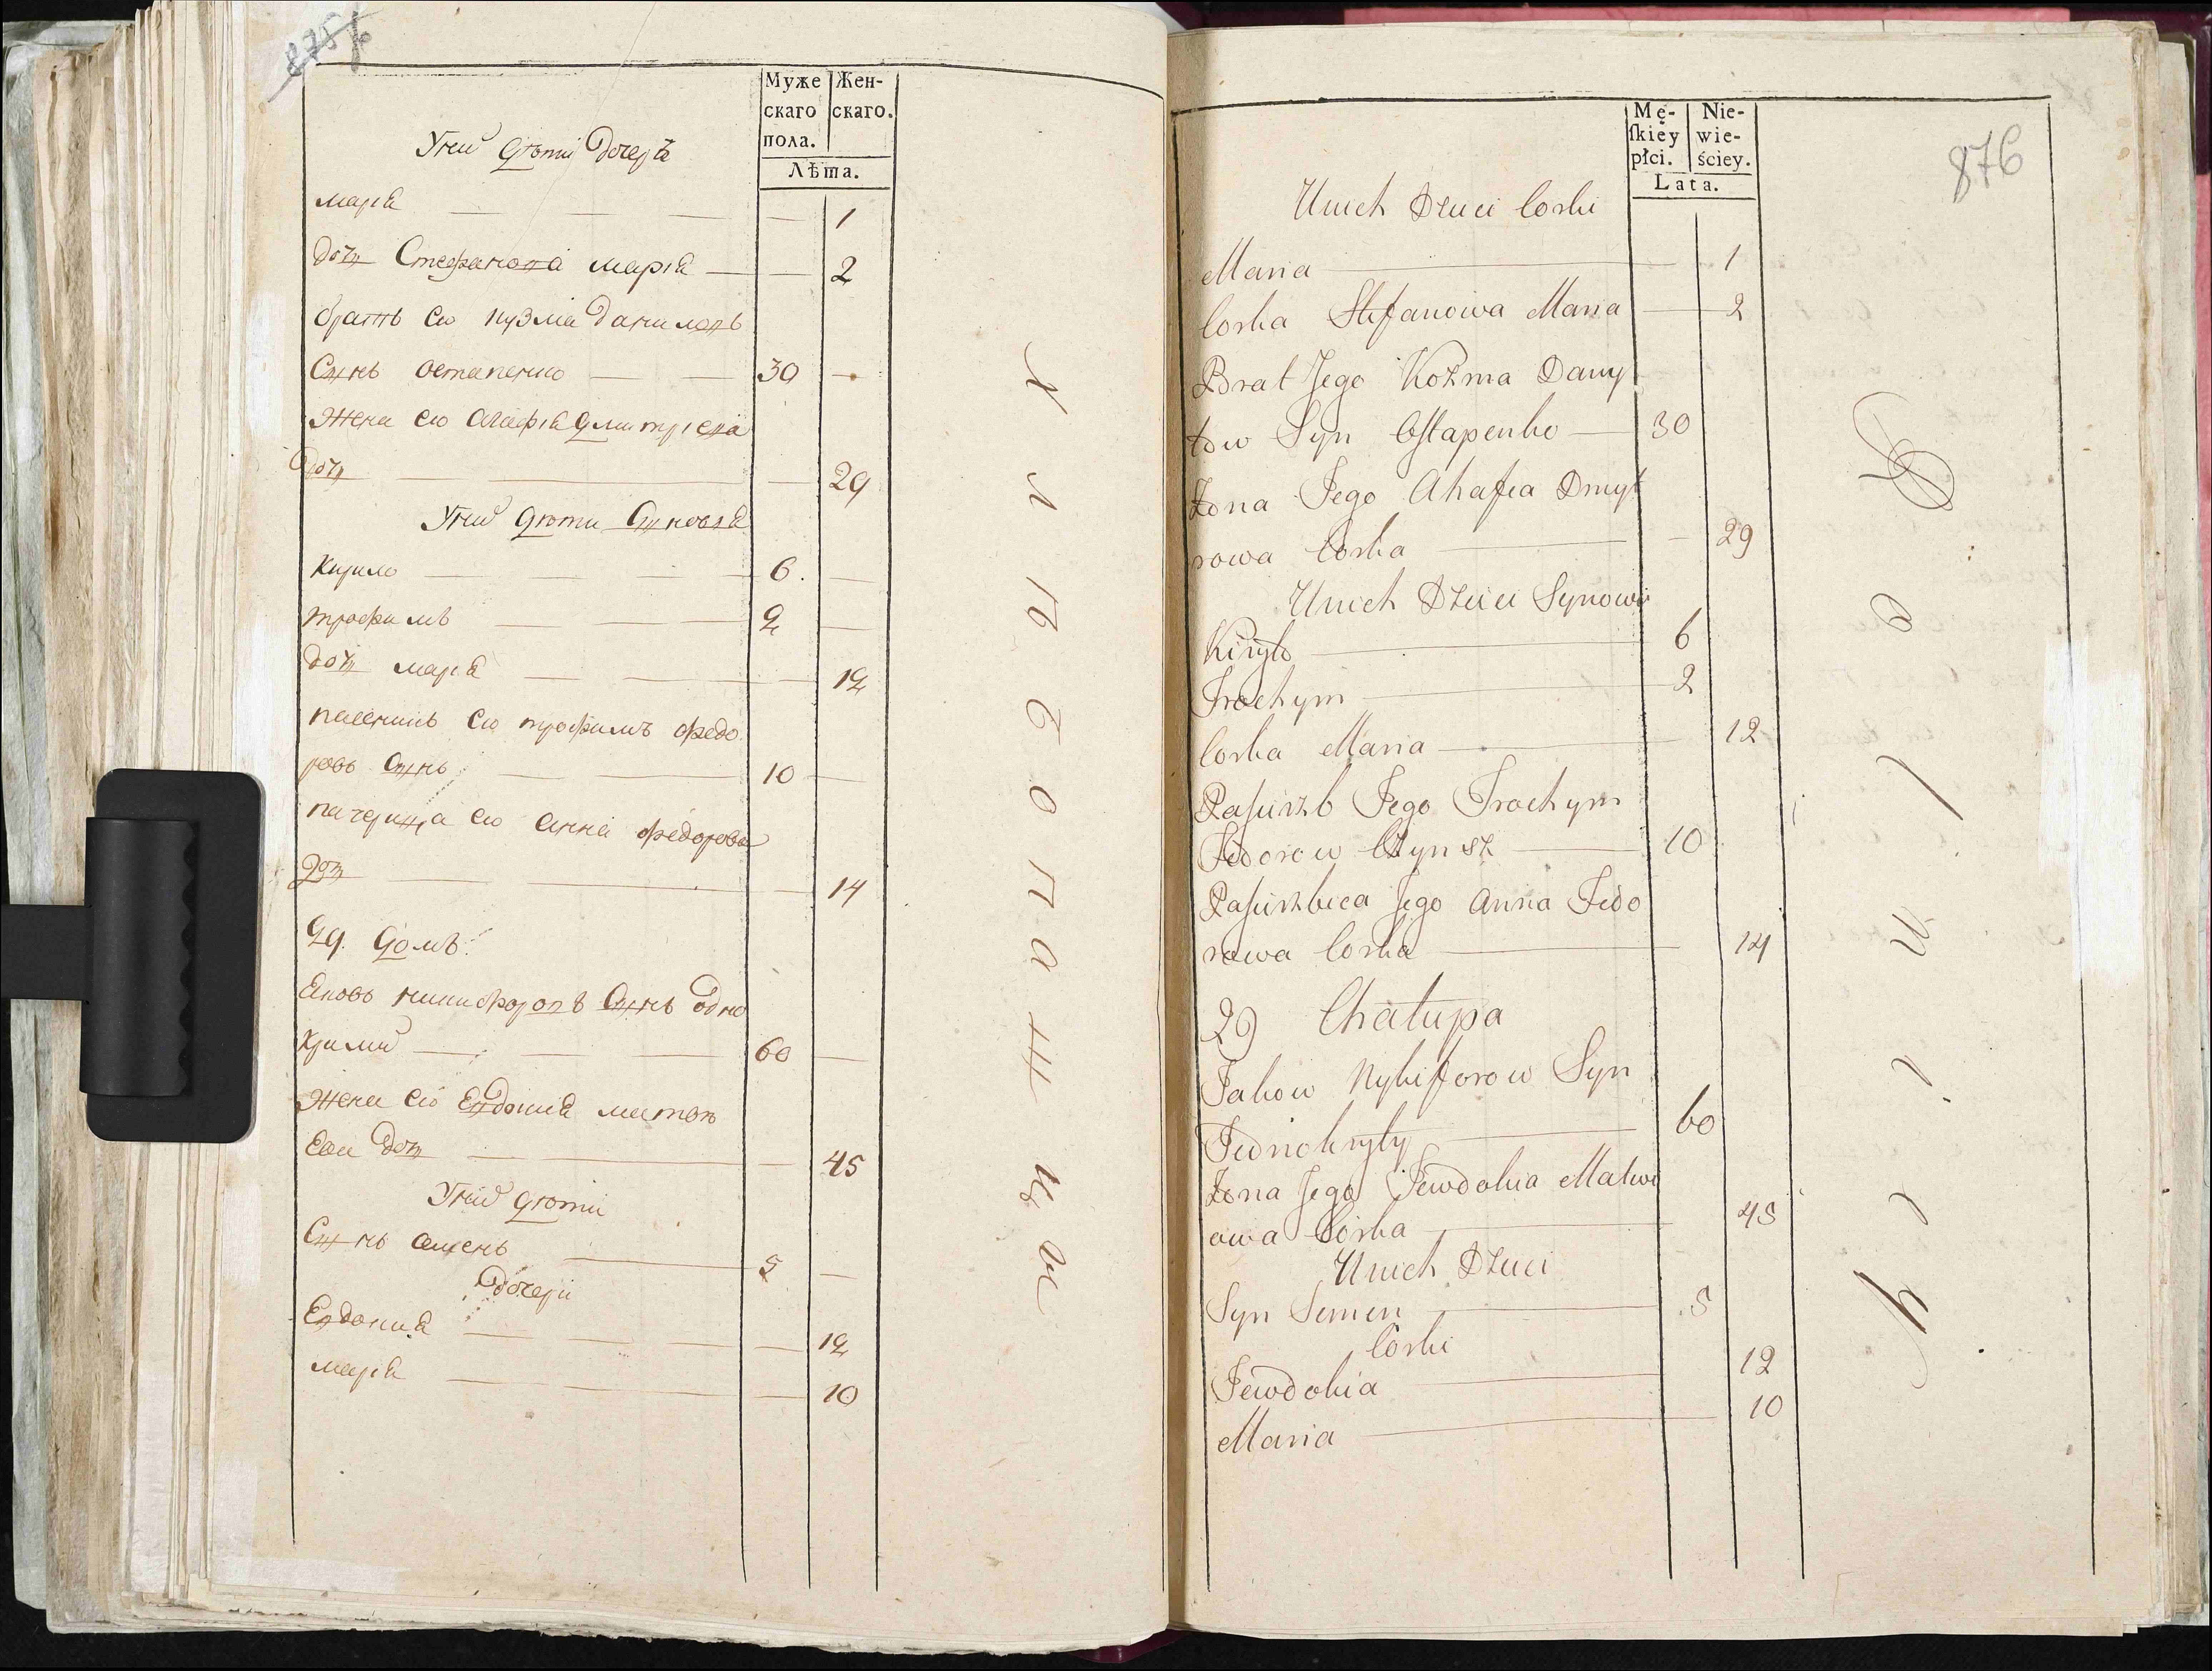 875
Муже
скаго
пола.
Жен-
скаго.
Лѣта.
У них дѣти дочерѣ
марія — 1
дочь Стефанова марія — 2
братъ ево кузма даниловъ
Сынъ остапенко — 30 —
Жена ево агафія дмитріева
дочь — 29
У них дѣти Сыновья
Кирило — 6 —
трофимъ — 2 —
дочь марія — 12
пасенокъ ево трофимъ федо
ровъ Сынъ — 10 —
пачерица ево анна федорова
дочь — 14
29. домъ
Яковъ никифоровъ Сынъ одно
Крилий — 60 —
Жена ево Евдокия матве
ева дочь — 45
У них дѣти
Сынъ семенъ — 5 —
дочери
Евдокия — 12
марія — 10
Хлѣбопашцы
876
Mę-
ſkiéy
płci.
Nie-
wie-
ściey.
Lata.
Unich Dzieci Corki
Maria — 1
Corka Stefanowa Maria — 2
Brat Jego Kozma Dany
łow Syn Ostapenko — 30
Zona Jego Ahafia Dmyt
rowa Corka — 29
Unich Dzieci Synowie
Kiryło — 6
Trochym — 2
Corka Maria — 12
Pasierzb Jego Trochym
Fedorow Czynsz — 10
Pasierzbica Jego Anna Fedo
rowa Corka — 14
29 Chałupa
Jakow Nykiforow Syn
Jednokryły — 60
Zona Jego Jewdokia Matwi
owa Corka — 45
Unich Dzieci
Syn Semen — 5
Corki
Jewdokia — 12
Maria — 10